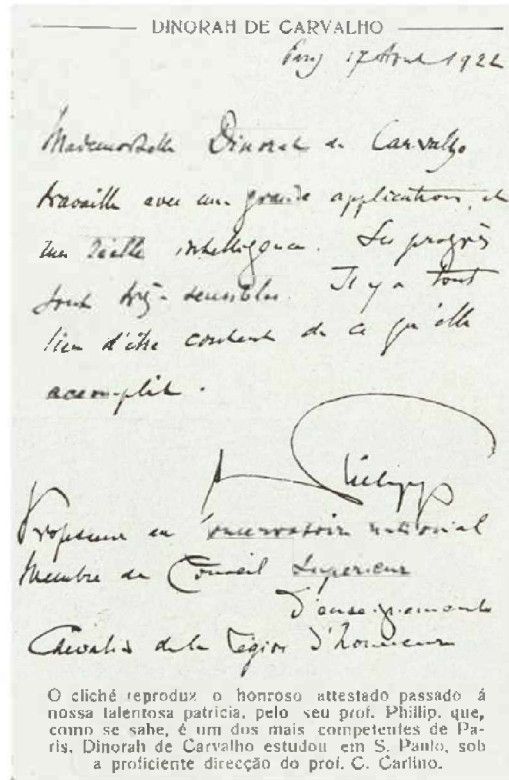 DINORAH DE CARVALHO
17 Avril 1922
Mademoiselle Dinorah de Carvalho
travaille avec une grande application, et
une réelle intelligence. Ses progrès
sont très sensibles. Il y a tout
lieu d'être content de ce qu'elle
accomplit.
Philipp
Professeur au Conservatoire national
Membre du Conseil Supérieur
d'enseignement
Chevalier de la Légion d'honneur
O cliché reproduz o honroso attestado passado á
nossa talentosa patricia, pelo seu prof. Phillip, que,
como se sabe, é um dos mais competentes de Pa-
ris. Dinorah de Carvalho estudou em S. Paulo, sob
a proficiente direcção do prof. C. Carlino.